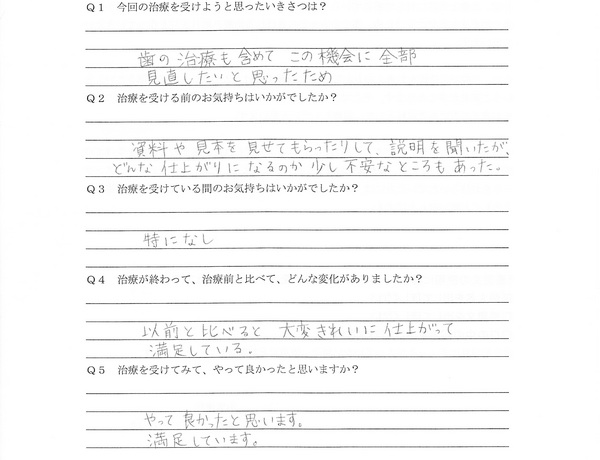 Q1 今回の治療を受けようと思ったいきさつは?
歯の治療も含めて この機会に 全部
見直したいと思ったため
Q2 治療を受ける前のお気持ちはいかがでしたか?
資料や見本を見せてもらったりして、説明を聞いたが、
どんな仕上がりになるのか少し不安なところもあった。
Q3 治療を受けている間のお気持ちはいかがでしたか?
特になし
Q4 治療が終わって、治療前と比べて、どんな変化がありましたか?
以前と比べると 大変きれいに仕上がって
満足している。
Q5 治療を受けてみて、やって良かったと思いますか?
やって良かったと思います。
満足しています。